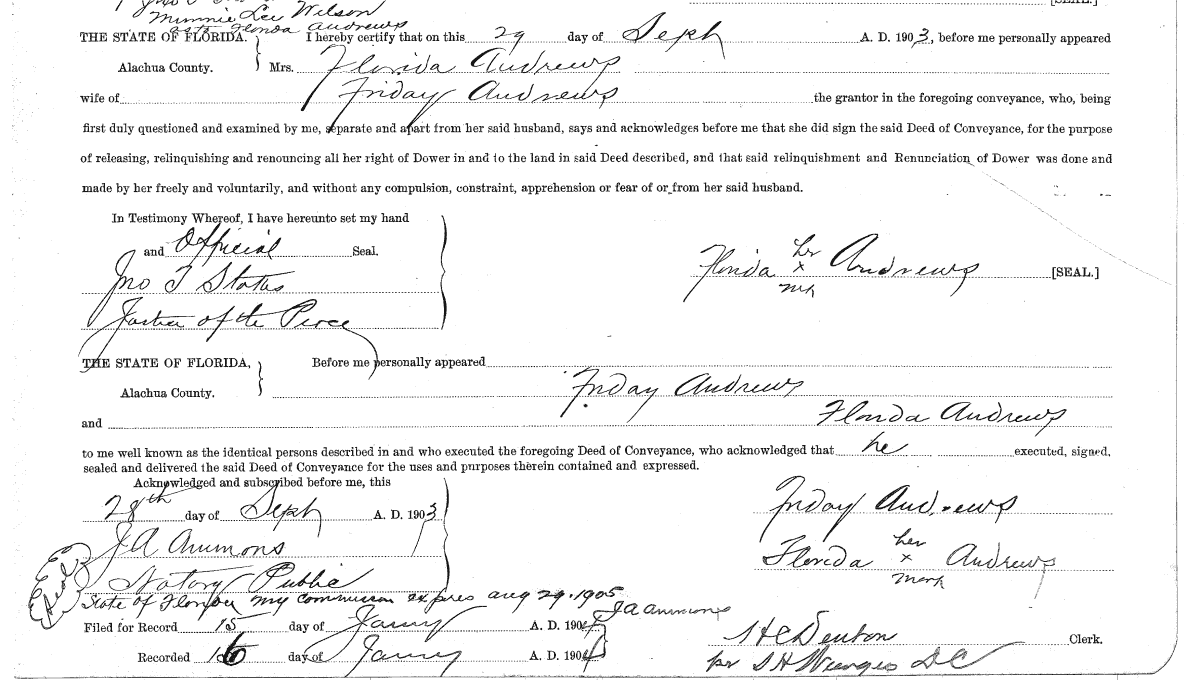 [SEAL.]
Minnie Lee Wilson
as to Florida Andrews
THE STATE OF FLORIDA. I hereby certify that on this 29 day of Sept A. D. 1903, before me personally appeared
Alachua County. Mrs. Florida Andrews
wife of Friday Andrews the grantor in the foregoing conveyance, who, being
first duly questioned and examined by me, separate and apart from her said husband, says and acknowledges before me that she did sign the said Deed of Conveyance, for the purpose
of releasing, relinquishing and renouncing all her right of Dower in and to the land in said Deed described, and that said relinquishment and Renunciation of Dower was done and
made by her freely and voluntarily, and without any compulsion, constraint, apprehension or fear of or from her said husband.
In Testimony Whereof, I have hereunto set my hand
and Official Seal.
Florida her x mrk Andrews [SEAL.]
Jno T States
Justice of the Peace
THE STATE OF FLORIDA, Before me personally appeared
Alachua County. Friday Andrews
and Florida Andrews
to me well known as the identical persons described in and who executed the foregoing Deed of Conveyance, who acknowledged that he executed, signed,
sealed and delivered the said Deed of Conveyance for the uses and purposes therein contained and expressed.
Acknowledged and subscribed before me, this
28th day of Sept A. D. 1903
Friday Andrews
J A Ammons
Florida her x mark Andrews
Seal
Notary Public
State of Florida my commission expires aug 29. 1905
J A Ammons
Filed for Record 15 day of Jany A. D. 1904
S H C Denton Clerk.
Recorded 16 day of Jany A. D. 1904
per S H Wienges D C